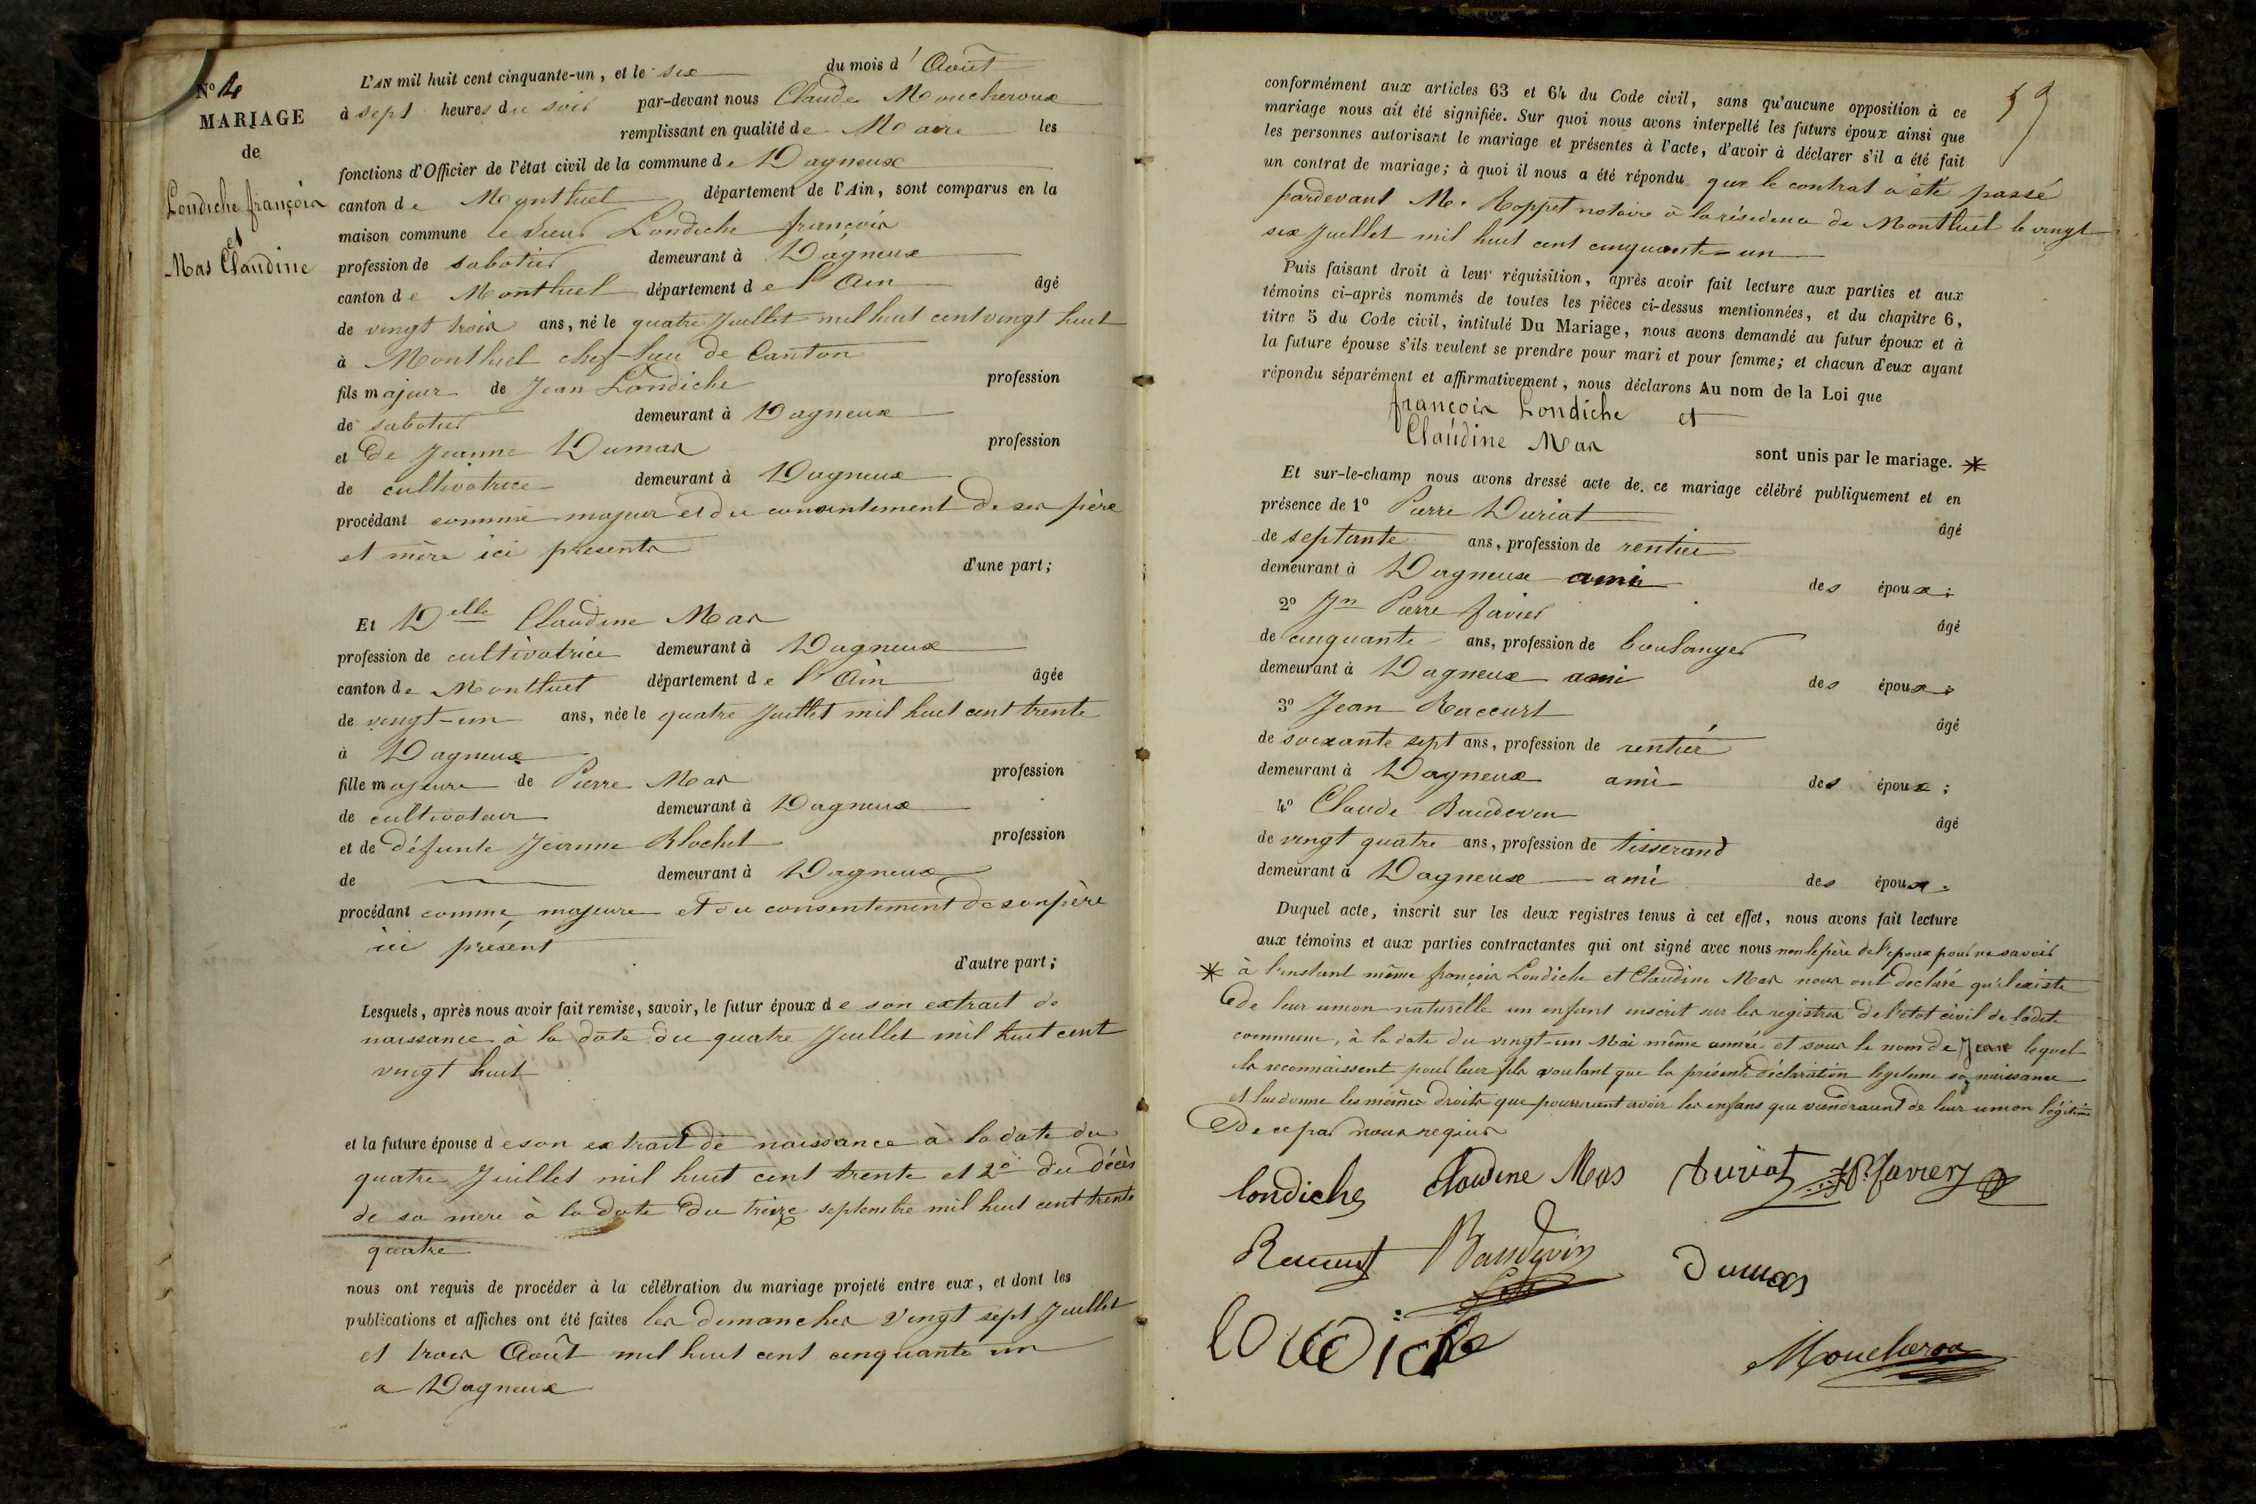 N.º 4
MARIAGE
de
Londiche françois
et
Mas Claudine
L'AN mil huit cent cinquante-un, et le six du mois d' Août
à sept heures du soir par-devant nous Claude Moucheroux
remplissant en qualité de Maire les
fonctions d'Officier de l'état civil de la commune de Dagneux
canton de Montluel département de l'Ain, sont comparus en la
maison commune le sieur Londiche françois
profession de sabotier demeurant à Dagneux
canton de Montluel département de l'Ain âgé
de vingt trois ans, né le quatre Juillet mil huit cent vingt huit
à Montluel chef-lieu de Canton
fils majeur de Jean Londiche profession
de sabotier demeurant à Dagneux
et de Jeanne Dumas profession
de cultivatrice demeurant à Dagneux
procédant comme majeur et du consentement de ses père
et mère ici presents
d'une part;
Et Delle Claudine Mas
profession de cultivatrice demeurant à Dagneux
canton de Montluel département de l'Ain âgée
de vingt-un ans, née le quatre Juillet mil huit cent trente
à Dagneux
fille majeure de Pierre Mas profession
de cultivateur demeurant à Dagneux
et de défunte Jeanne Blochet profession
de demeurant à Dagneux
procédant comme majeure et du consentement de son père
ici présent
d'autre part;
Lesquels, après nous avoir fait remise, savoir, le futur époux de son extrait de
naissance à la date du quatre Juillet mil huit cent
vingt huit
et la future épouse de son extrait de naissance à la date du
quatre Juillet mil huit cent trente et 2º du décès
de sa mere à la date du treize septembre mil huit cent trente
quatre
nous ont requis de procéder à la célébration du mariage projeté entre eux, et dont les
publications et affiches ont été faites les dimanches vingt sept Juillet
et trois Août mil huit cent cinquante un
a Dagneux
59
conformément aux articles 63 et 64 du Code civil, sans qu'aucune opposition à ce
mariage nous ait été signifiée. Sur quoi nous avons interpellé les futurs époux ainsi que
les personnes autorisant le mariage et présentes à l'acte, d'avoir à déclarer s'il a été fait
un contrat de mariage; à quoi il nous a été répondu que le contrat a été passé
pardevant Me. Roppet notaire à la résidence de Montluel le vingt
six Juillet mil huit cent cinquante-un
Puis faisant droit à leur réquisition, après avoir fait lecture aux parties et aux
témoins ci-après nommés de toutes les pièces ci-dessus mentionnées, et du chapitre 6,
titre 5 du Code civil, intitulé Du Mariage, nous avons demandé au futur époux et à
la future épouse s'ils veulent se prendre pour mari et pour femme; et chacun d'eux ayant
répondu séparément et affirmativement, nous déclarons Au nom de la Loi que
françois Londiche et
Claudine Mas
sont unis par le mariage. *
Et sur-le-champ nous avons dressé acte de ce mariage célébré publiquement et en
présence de 1º Pierre Duriat âgé
de septante ans, profession de rentier
demeurant à Dagneux ami des époux;
2º Jn Pierre favier âgé
de cinquante ans, profession de boulanger
demeurant à Dagneux ami des époux;
3º Jean Raccurt âgé
de soixante sept ans, profession de rentier
demeurant à Dagneux ami des époux;
4º Claude Baudevin âgé
de vingt quatre ans, profession de tisserand
demeurant à Dagneux ami des époux.
Duquel acte, inscrit sur les deux registres tenus à cet effet, nous avons fait lecture
aux témoins et aux parties contractantes qui ont signé avec nous non le père de l'époux pour ne savoir
* à l'instant même françois Londiche et Claudine Mas nous ont declaré qu'il existe
de leur union naturelle un enfant inscrit sur les registres de l'état civil de ladite
commune, à la date du vingt-un Mai même année et sous le nom de Jean lequel
ils reconnaissent pour leur fils voulant que la présente déclaration legitime sa naissance
et lui donne les mêmes droits que pourraient avoir les enfans qui viendraient de leur union légitime
De ce par nous requis
londiche Claudine Mas Duriat JP. favier
Raccurt Baudevin Dumas
londiche
Moucheroux